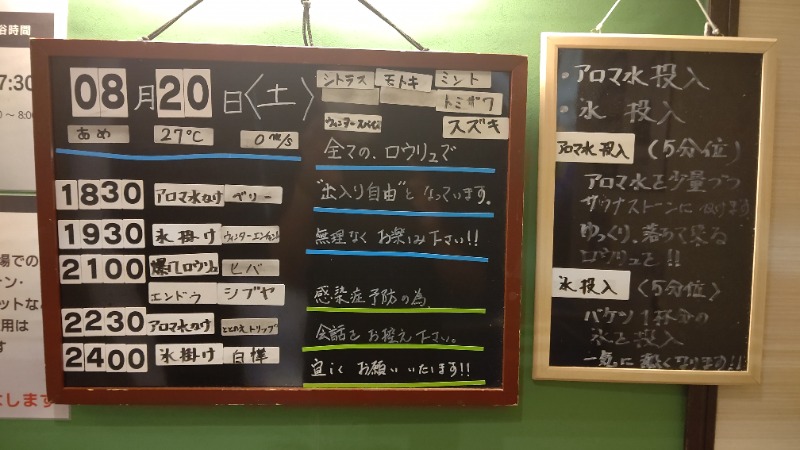 谷時間
7:30
～8:00
場での
ーン・
ットな
用は
す
します
08月20日〈土〉
あめ 27℃ 0m/s
シトラス モトキ ミント
トミザワ
ウィンタースパイス スズキ
1830 アロマ水かけ ベリー
1930 氷掛け
2100 爆汗ロウリュ ヒバ
エンドウ シブヤ
2230 アロマ水かけ ととのえトリップ
2400 氷掛け 白樺
全ての、ロウリュで
"出入り自由"となっています。
無理なくお楽しみ下さい!!
感染症予防の為、
会話をお控え下さい。
宜しくお願いいたします!!
・アロマ水投入
・氷 投入
アロマ水投入 (5分位)
アロマ水を少量づつ
サウナストーンにかけます
ゆっくり、落めて来る
ロウリュを!!
氷投入 (5分位)
バケツ1杯分の
氷を投入
一気に熱くなります!!